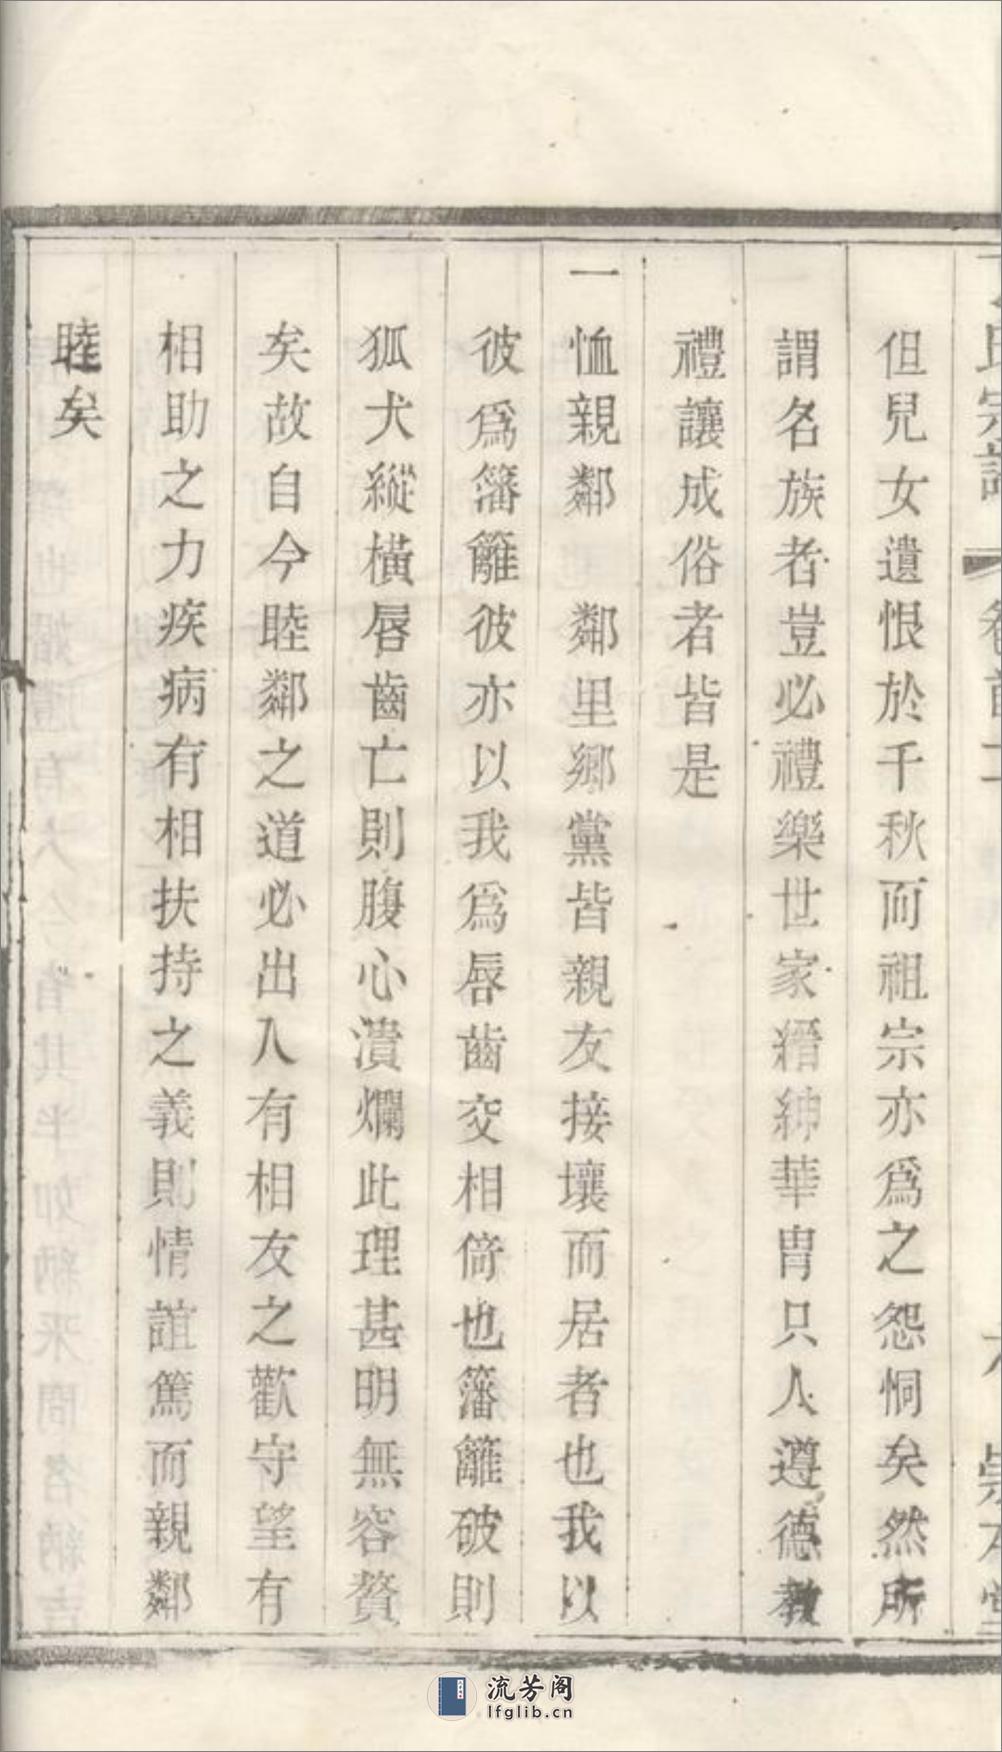 氏宗譜 卷首二 六 崇本堂
但兒女遺恨於千秋而祖宗亦爲之怨恫矣然所
謂名族者豈必禮樂世家縉紳華胄只人遵德教
禮讓成俗者皆是
一恤親鄰 鄰里鄉黨皆親友接壤而居者也我以
彼爲籓籬彼亦以我爲唇齒交相倚也籓籬破則
狐犬縱橫唇齒亡則腹心潰爛此理甚明無容贅
矣故自今睦鄰之道必出入有相友之歡守望有
相助之力疾病有相扶持之義則情誼篤而親鄰
睦矣
流芳阁
lfglib.cn